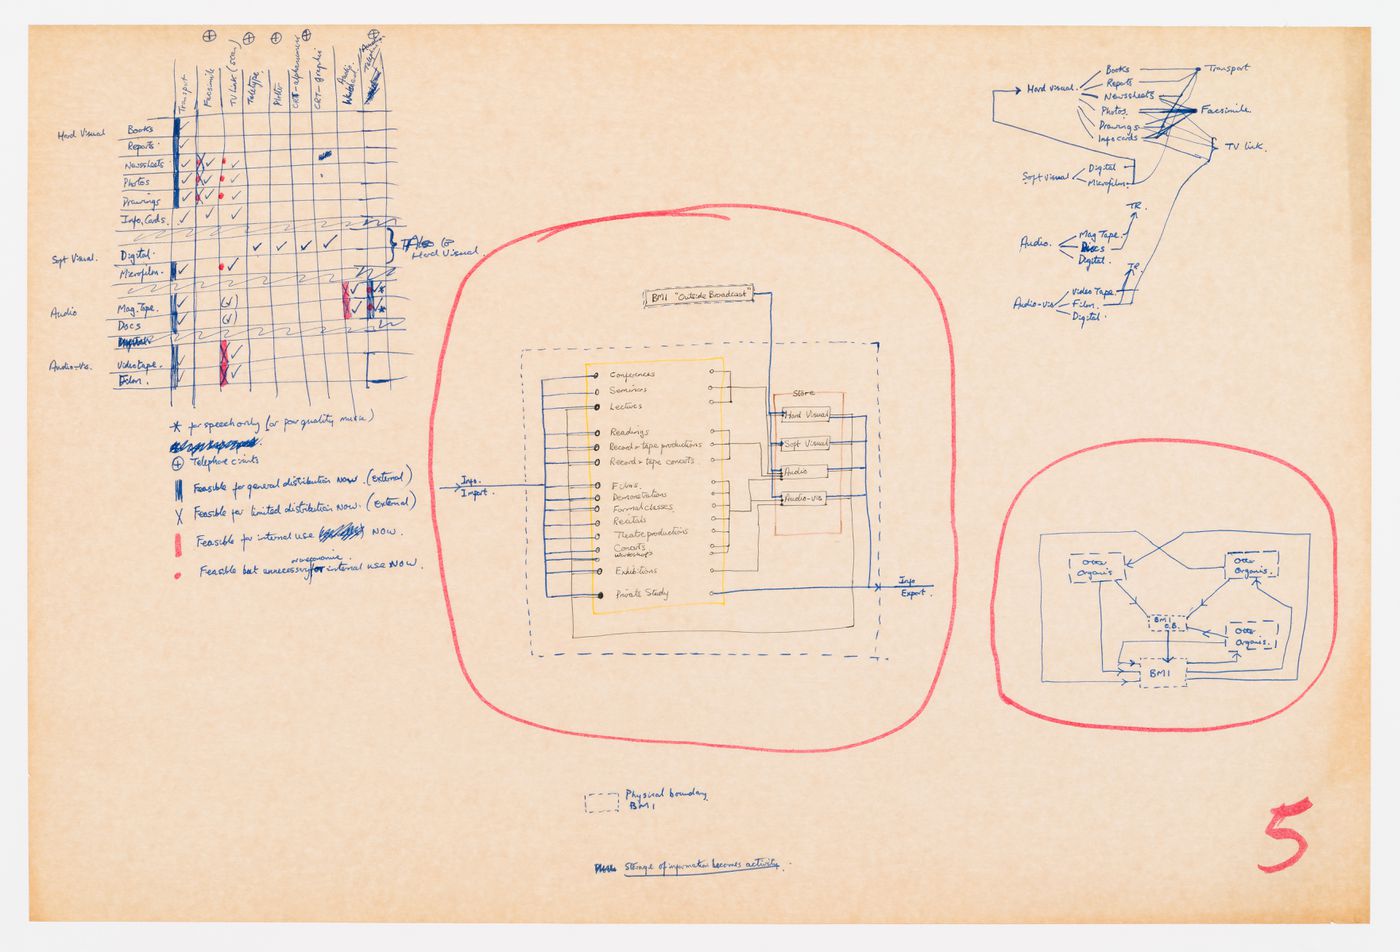 Transport
Facsimile
TV Link (scan)
Teletype
Plotter
CRT-alphanumeric
CRT-graphic
Audio
Hard Visual
Books
Reports
Newssheets
Photos
Drawings
Info. Cards
Soft Visual.
Digital.
Microfilm.
Hard Visual.
Audio
Mag. Tape.
Discs
Audio-vis.
Videotape.
Film.
* for speech only (or poor quality music)
⊕ Telephone circuits
Feasible for general distribution NOW. (External)
X Feasible for limited distribution NOW. (External)
Feasible for internal use NOW.
uneconomic
Feasible but unnecessary for internal use NOW.
BMI "Outside Broadcast"
Conferences
Seminars
Lectures
Readings
Record & tape productions
Record & tape concerts
Films.
Demonstrations
Formal classes
Recitals
Theatre productions
Concerts
Workshops
Exhibitions
Private Study
Store
Hard Visual
Soft Visual
Audio
Audio-vis
Info.
Import.
Info
Export.
Physical boundary
BMI
Storage of information becomes activity.
Hard Visual.
Books
Reports
Newssheets
Photos.
Drawings
Infocards
Transport
Facsimile
TV link.
Soft Visual
Digital
Microfilm.
TR.
Audio.
Mag Tape.
Discs
Digital.
TR.
Audio-vis
Video Tape.
Film.
Digital.
Other
Organis.
Other
Organis.
BMI
O.B.
Other
Organis.
BMI
5